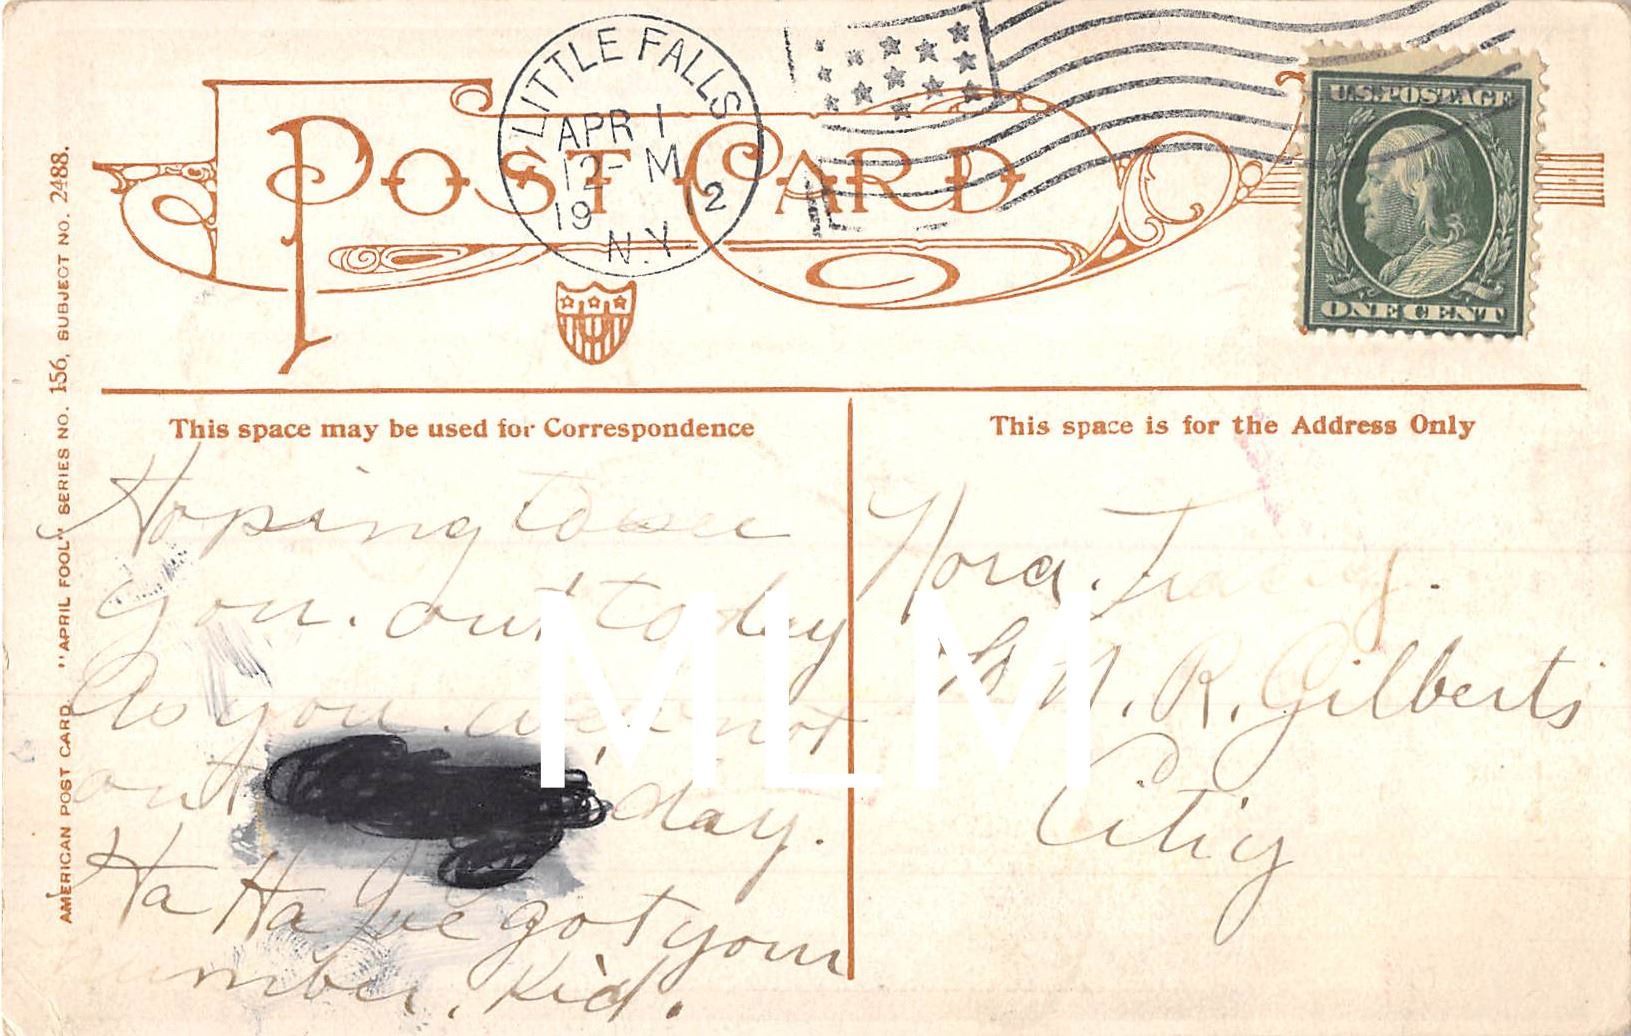 LITTLE FALLS
APR 1
12- M
19 12
N.Y.
U.S. POSTAGE
ONE CENT
POST CARD
This space may be used for Correspondence
This space is for the Address Only
Hoping to see
you. out today
As you were not
out day.
Ha Ha I've got your
number, Kid.
Nora. Tracy.
N. R. Gilberts
City
AMERICAN POST CARD. "APRIL FOOL" SERIES NO. 156, SUBJECT NO. 2488.
MLM